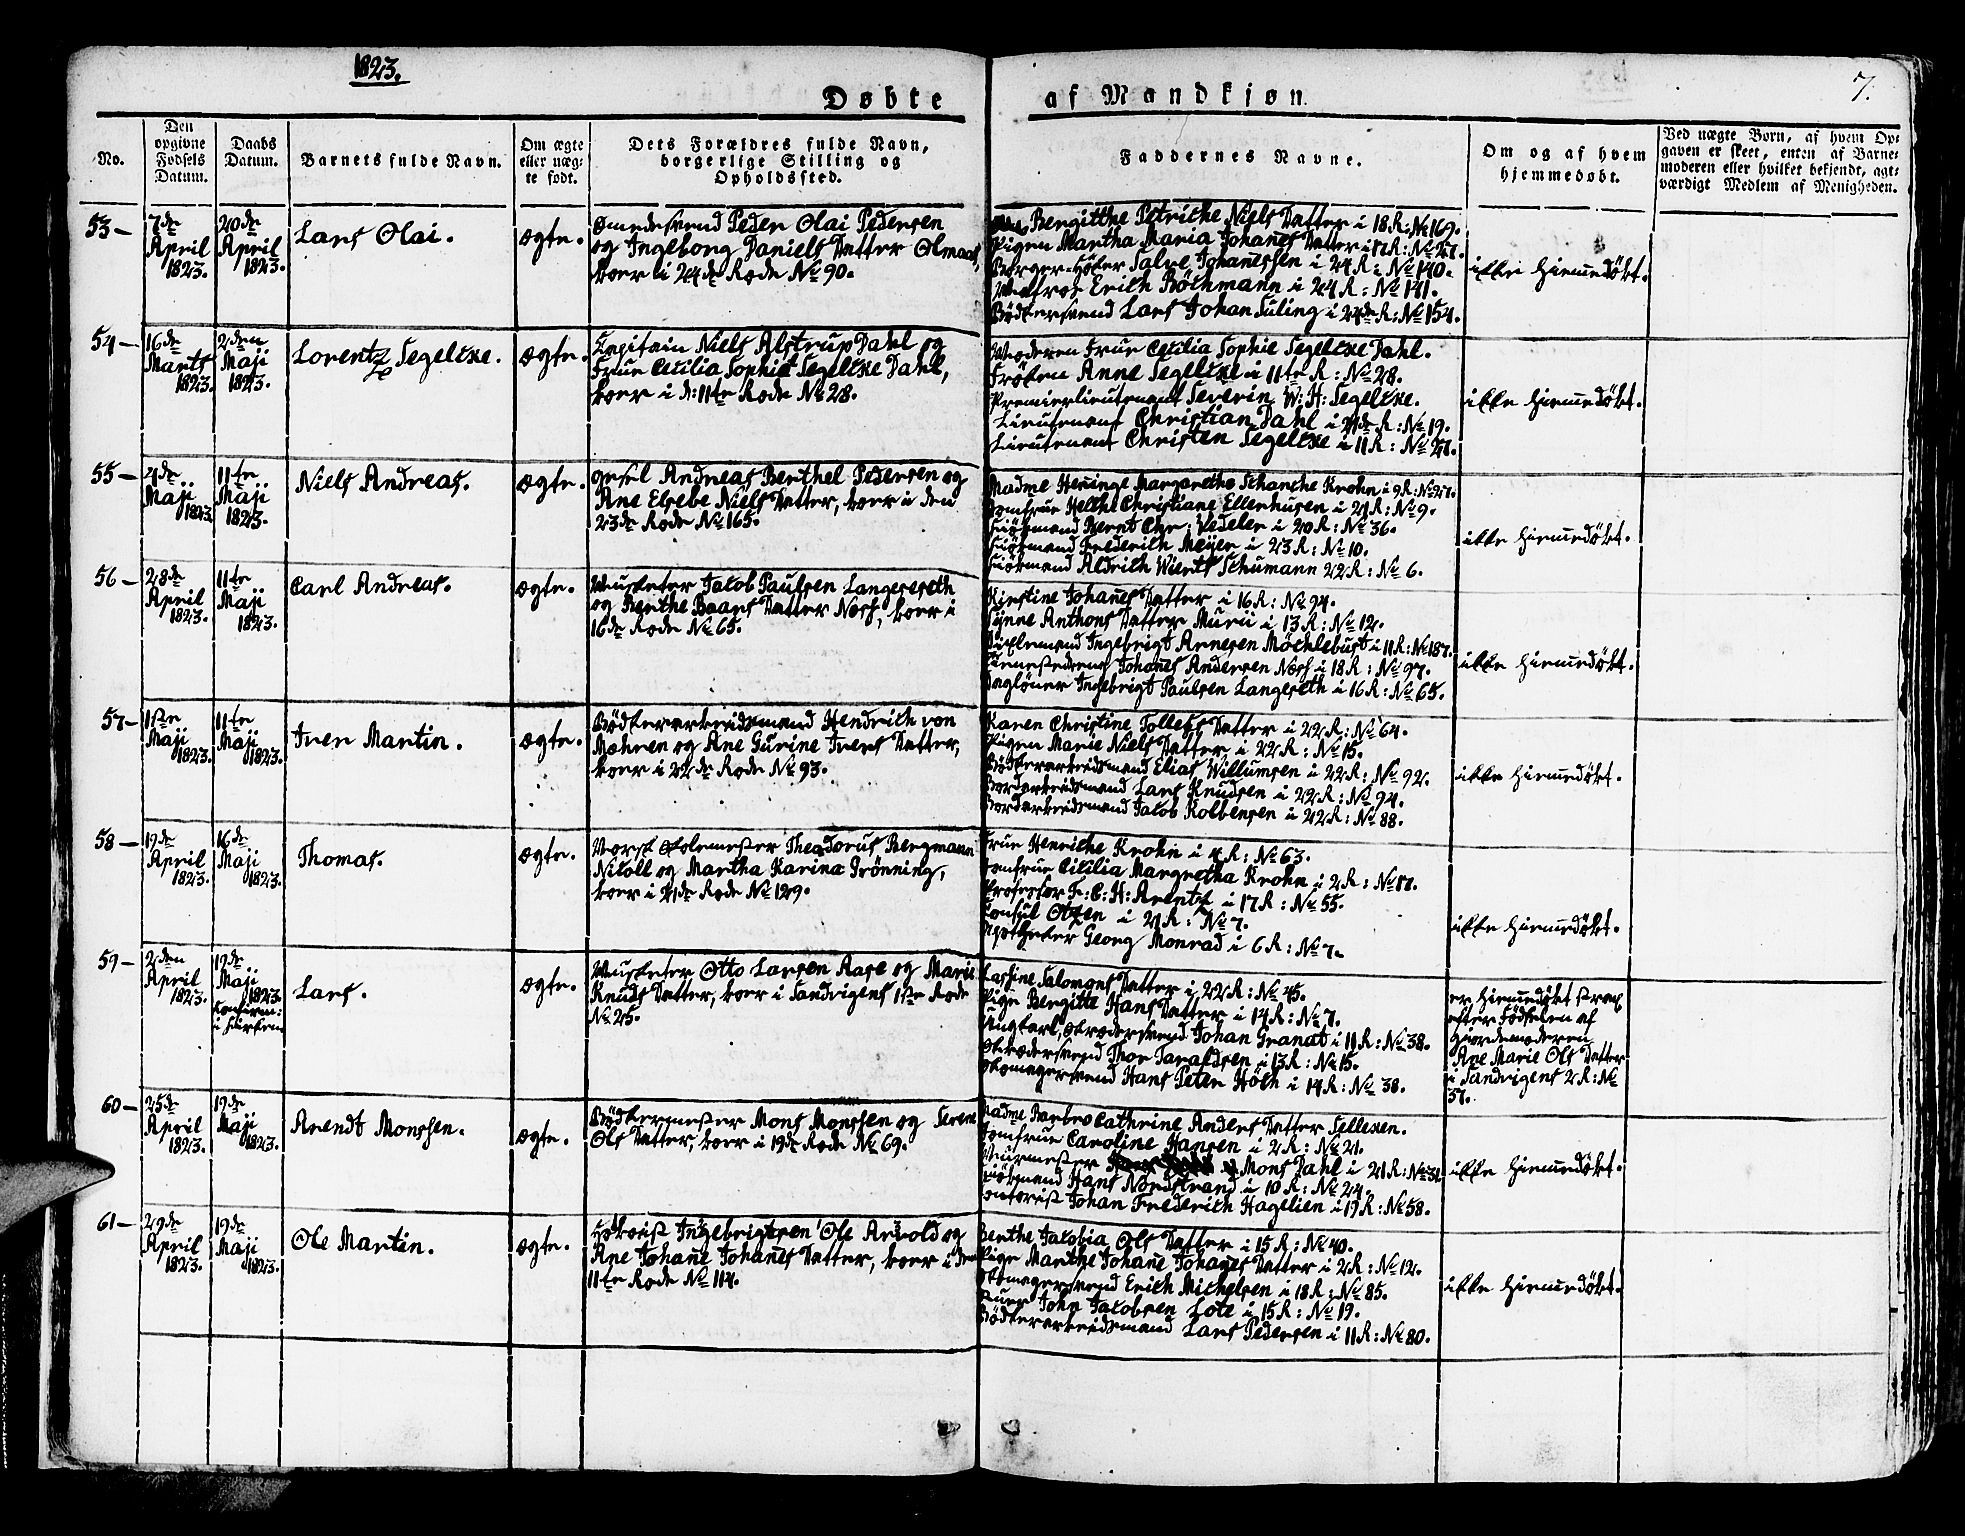 1823.
7.
Døbte af Mandkjøn.
No.
Den opgivne Fødsels Datum.
Daabs Datum.
Barnets fulde Navn.
Om ægte eller uægte født.
Dets Forældres fulde Navn, borgerlige Stilling og Opholdssted.
Faddernes Navne.
Om og af hvem hjemmedøbt.
Ved uægte Børn, af hvem Opgaven er skeet, enten af Barnemoderen eller hvilket bekjendt, agtværdigt Medlem af Menigheden.
53-
7de April 1823.
20de April 1823.
Lars Olai.
ægte.
Smedesvend Peder Olai Pedersen
og Ingeborg Daniels Datter Olmaas,
boer i 24de Rode No 90.
Bergitthe Petriche Niels Datter i 18 R: No 169.
Pigen Martha Maria Johañes Datter i 17 R: No 27.
Borger Salve Johanessen i 24 R: No 140.
Matros Erich Böthmann i 24 R: No 141.
Bödkersvend Lars Johan Süling i 24de R: No 154.
ikke hiemedöbt.
54-
16de Marts 1823.
2den Maji 1823.
Lorentz Segelcke.
ægte.
Capitain Niels Alstrup Dahl og
Frue Cecilia Sophie Segelcke Dahl,
boer i d: 11te Rode No 28.
Moderen Frue Cecilia Sophie Segelcke Dahl.
Fröken Anne Segelcke i 11te R: No 28.
Premierlieutenant Severin W: H: Segelcke.
Lieutenant Christian Dahl i 21de R: No 19.
Lieutenant Christen Segelcke i 11 R: No 27.
ikke hiemedöbt.
55-
4de Maji 1823.
11te Maji 1823.
Niels Andreas.
ægte.
Andreas Berthel Pedersen og
Ane Elsebe Niels Datter, boer i den
23de Rode No 165.
Madme Heninge Margarethe Schanche Krohn i 9 R: No 27.
Jomfrue Helthe Christiane Ellerhusen i 21 R: No 9.
Kiöbmand Bernt Chr: Vedeler i 20 R: No 36.
Kiöbmand Frederich Meyer i 23 R: No 10.
Kiöbmand Aldrich Wierts Schumann 22 R: No 6.
ikke hiemedöbt.
56-
28de April 1823.
11te Maji 1823.
Carl Andreas.
ægte.
Musketer Jacob Paulsen Langeseth
og Berthe Baars Datter Ness, boer i
16de Rode No 65.
Kirstine Johañes Datter i 16 R: No 94.
Synne Anthons Datter Murii i 13 R: No 12.
Ingebrigt Arnesen Möchlebust i 11 R: No 187.
Johañes Andersen Ness i 18 R: No 97.
Dagløner Ingebrigt Paulsen Langeseth i 16 R: No 65.
ikke hiemedöbt.
57-
1ste Maji 1823.
11te Maji 1823.
Iver Martin.
ægte.
Bödkerarbeidsmand Hendrich von
Mehren og Ane Gurine Ivers Datter,
boer i 22de Rode No 93.
Karen Christine Tollefs Datter i 22 R: No 64.
Pigen Marie Niels Datter i 22 R: No 15.
Bödkerarbeidsmand Elias Willumsen i 22 R: No 92.
Bordarbeidsmand Lars Knudsen i 22 R: No 94.
Bordarbeidsmand Jacob Kolbensen i 22 R: No 88.
ikke hiemedöbt.
58-
19de April 1823.
16de Maji 1823.
Thomas.
ægte.
Norsk Skolemester Theodorus Bergmann
Nicoll og Martha Karina Grönning,
boer i 21de Rode No 129.
Frue Henriche Krohn i 4 R: No 63.
Jomfrue Cicilia Margretha Krohn i 2 R: No 87.
Professor Fr: C: H: Arentz i 17 R: No 55.
Consul Otzen i 21 R: No 7.
Apotheker Georg Monrad i 6 R: No 7.
ikke hiemedöbt.
59-
2den April 1823.
19de Maji 1823. Confirm: i Kirken
Lars.
ægte.
Musketer Otto Larsen Aase og Marie
Knuds Datter, boer i Sandvigens 1ste Rode
No 25.
Lassine Salomons Datter i 22 R: No 45.
Pige Bergitte Hans Datter i 14 R: No 7.
Ungkarl, Skrædersvend Johan Granat i 11 R: No 38.
Skrædersvend Thor Taraldsen i 13 R: No 15.
Skomagersvend Hans Peter Höch i 14 R: No 38.
er hiemedöbt strax
efter Födselen af
Giordemoderen
Ane Marie Ols Datter
i Sandvigens 2 R: No
37.
60-
25de April 1823.
19de Maji 1823.
Arendt Monssen.
ægte.
Bödkermester Mons Monssen og Serene
Ols Datter, boer i 19de Rode No 69.
Madme Barbro Cathrine Anders Datter Sellexen.
Jomfrue Caroline Hansen i 2 R: No 21.
Muurmester Mons Dahl i 21 R: No 31
Kiöbmand Hans Nordstrand i 10 R: No 24.
Contorist Johan Frederich Hagelien i 19 R: No 58.
ikke hiemedöbt.
61-
29de April 1823.
19de Maji 1823.
Ole Martin.
ægte.
Ingebrigtsen Ole Arvold og
Ane Johañe Johañes Datter, boer i den
11te Rode No 114.
Berthe Jacobia Ols Datter i 15 R: No 40.
Pige Marthe Johañe Johañes Datter i 2 R: No 12.
Skomagersvend Erich Michelsen i 18 R: No 85.
John Jacobsen Lote i 15 R: No 19.
Bödkerarbeidsmand Lars Pedersen i 11 R: No 80.
ikke hiemedöbt.